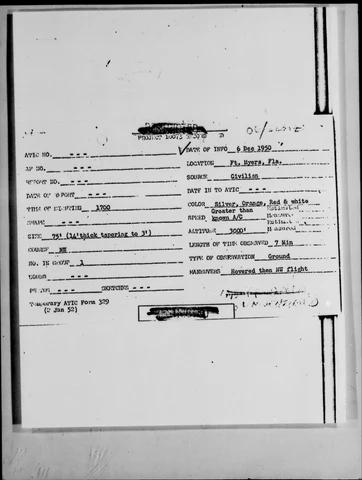 PROJECT 10073 RECORD
ATIC NO. - - -
AF NO. - - -
REPORT NO. - - -
DATE OF REPORT - - -
TIME OF SIGHTING 1700
SHAPE - - -
SIZE 75' (14' thick tapering to 3')
COURSE NW
NO. IN GROUP 1
SOUND - - -
PHOTOS - - - SKETCHES - - -
Temporary ATIC Form 329
(2 Jan 52)
DATE OF INFO 6 Dec 1950
LOCATION Ft. Myers, Fla.
SOURCE Civilian
DATE IN TO ATIC - - -
COLOR Silver, Orange, Red & white
SPEED Greater than known A/C Estimated Measured
ALTITUDE 3000' Estimated Measured
LENGTH OF TIME OBSERVED 7 Min
TYPE OF OBSERVATION Ground
MANEUVERS Hovered then NW flight